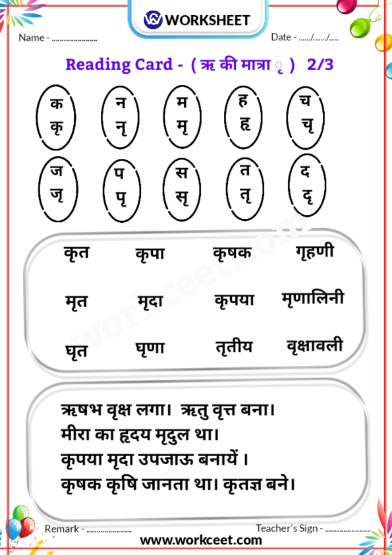 WORKSHEET
Name - ........................ Date - ....../....../.....
Reading Card - ( ऋ की मात्रा ृ ) 2/3
क न म ह च
कृ नृ मृ हृ चृ
ज प स त द
जृ पृ सृ तृ दृ
कृत कृपा कृषक गृहणी
मृत मृदा कृपया मृणालिनी
घृत घृणा तृतीय वृक्षावली
ऋषभ वृक्ष लगा। ऋतु वृत्त बना।
मीरा का हृदय मृदुल था।
कृपया मृदा उपजाऊ बनायें ।
कृषक कृषि जानता था। कृतज्ञ बने।
Remark - ........................ Teacher's Sign - ........................
www.workceet.com